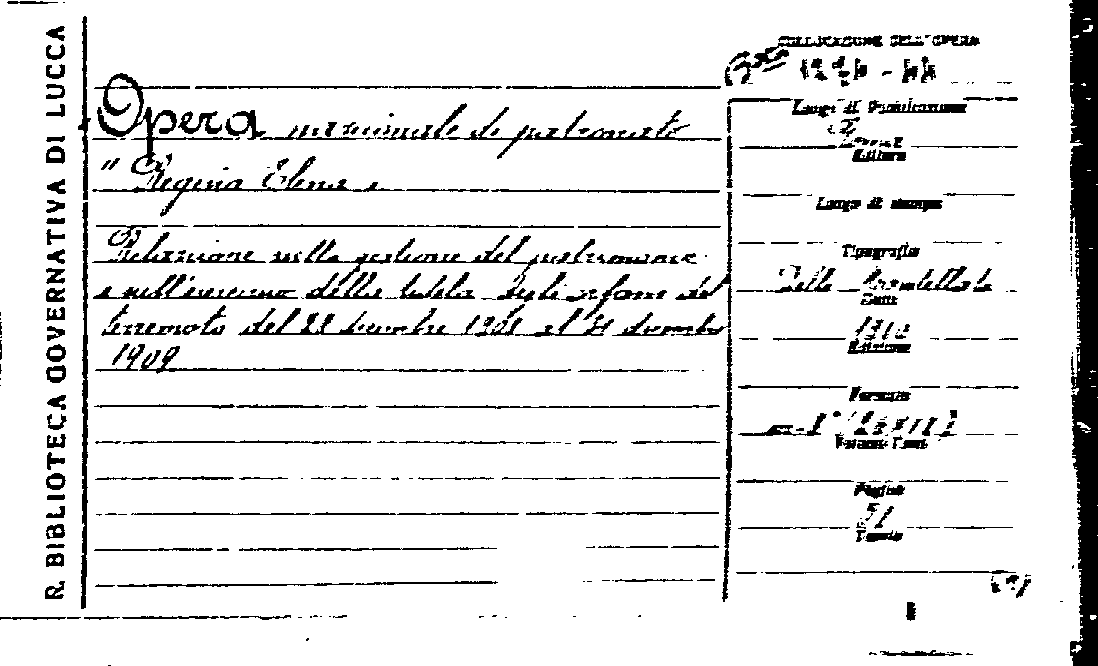 R. BIBLIOTECA GOVERNATIVA DI LUCCA
Opera nazionale di patronato
"Regina Elena"
Relazione sulla gestione del patrimonio
e sull'esercizio della tutela degli orfani del
terremoto del 28 dicembre 1908 al 31 dicembre
1909
COLLOCAZIONE DELL'OPERA
Busta
Luogo di Pubblicazione
Roma
Editore
Luogo di stampa
Tipografia
Delle Mantellate
Data
1910
Edizione
Formato
Volumi
Pagine
51
Tavole